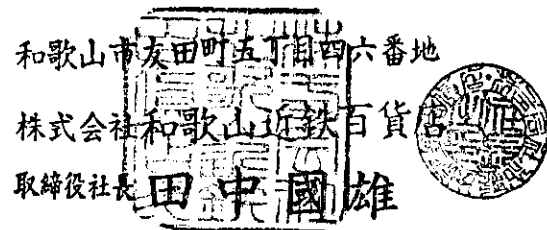 和歌山市友田町五丁目四六番地
株式会社和歌山近鉄百貨店
取締役社長 田中國雄